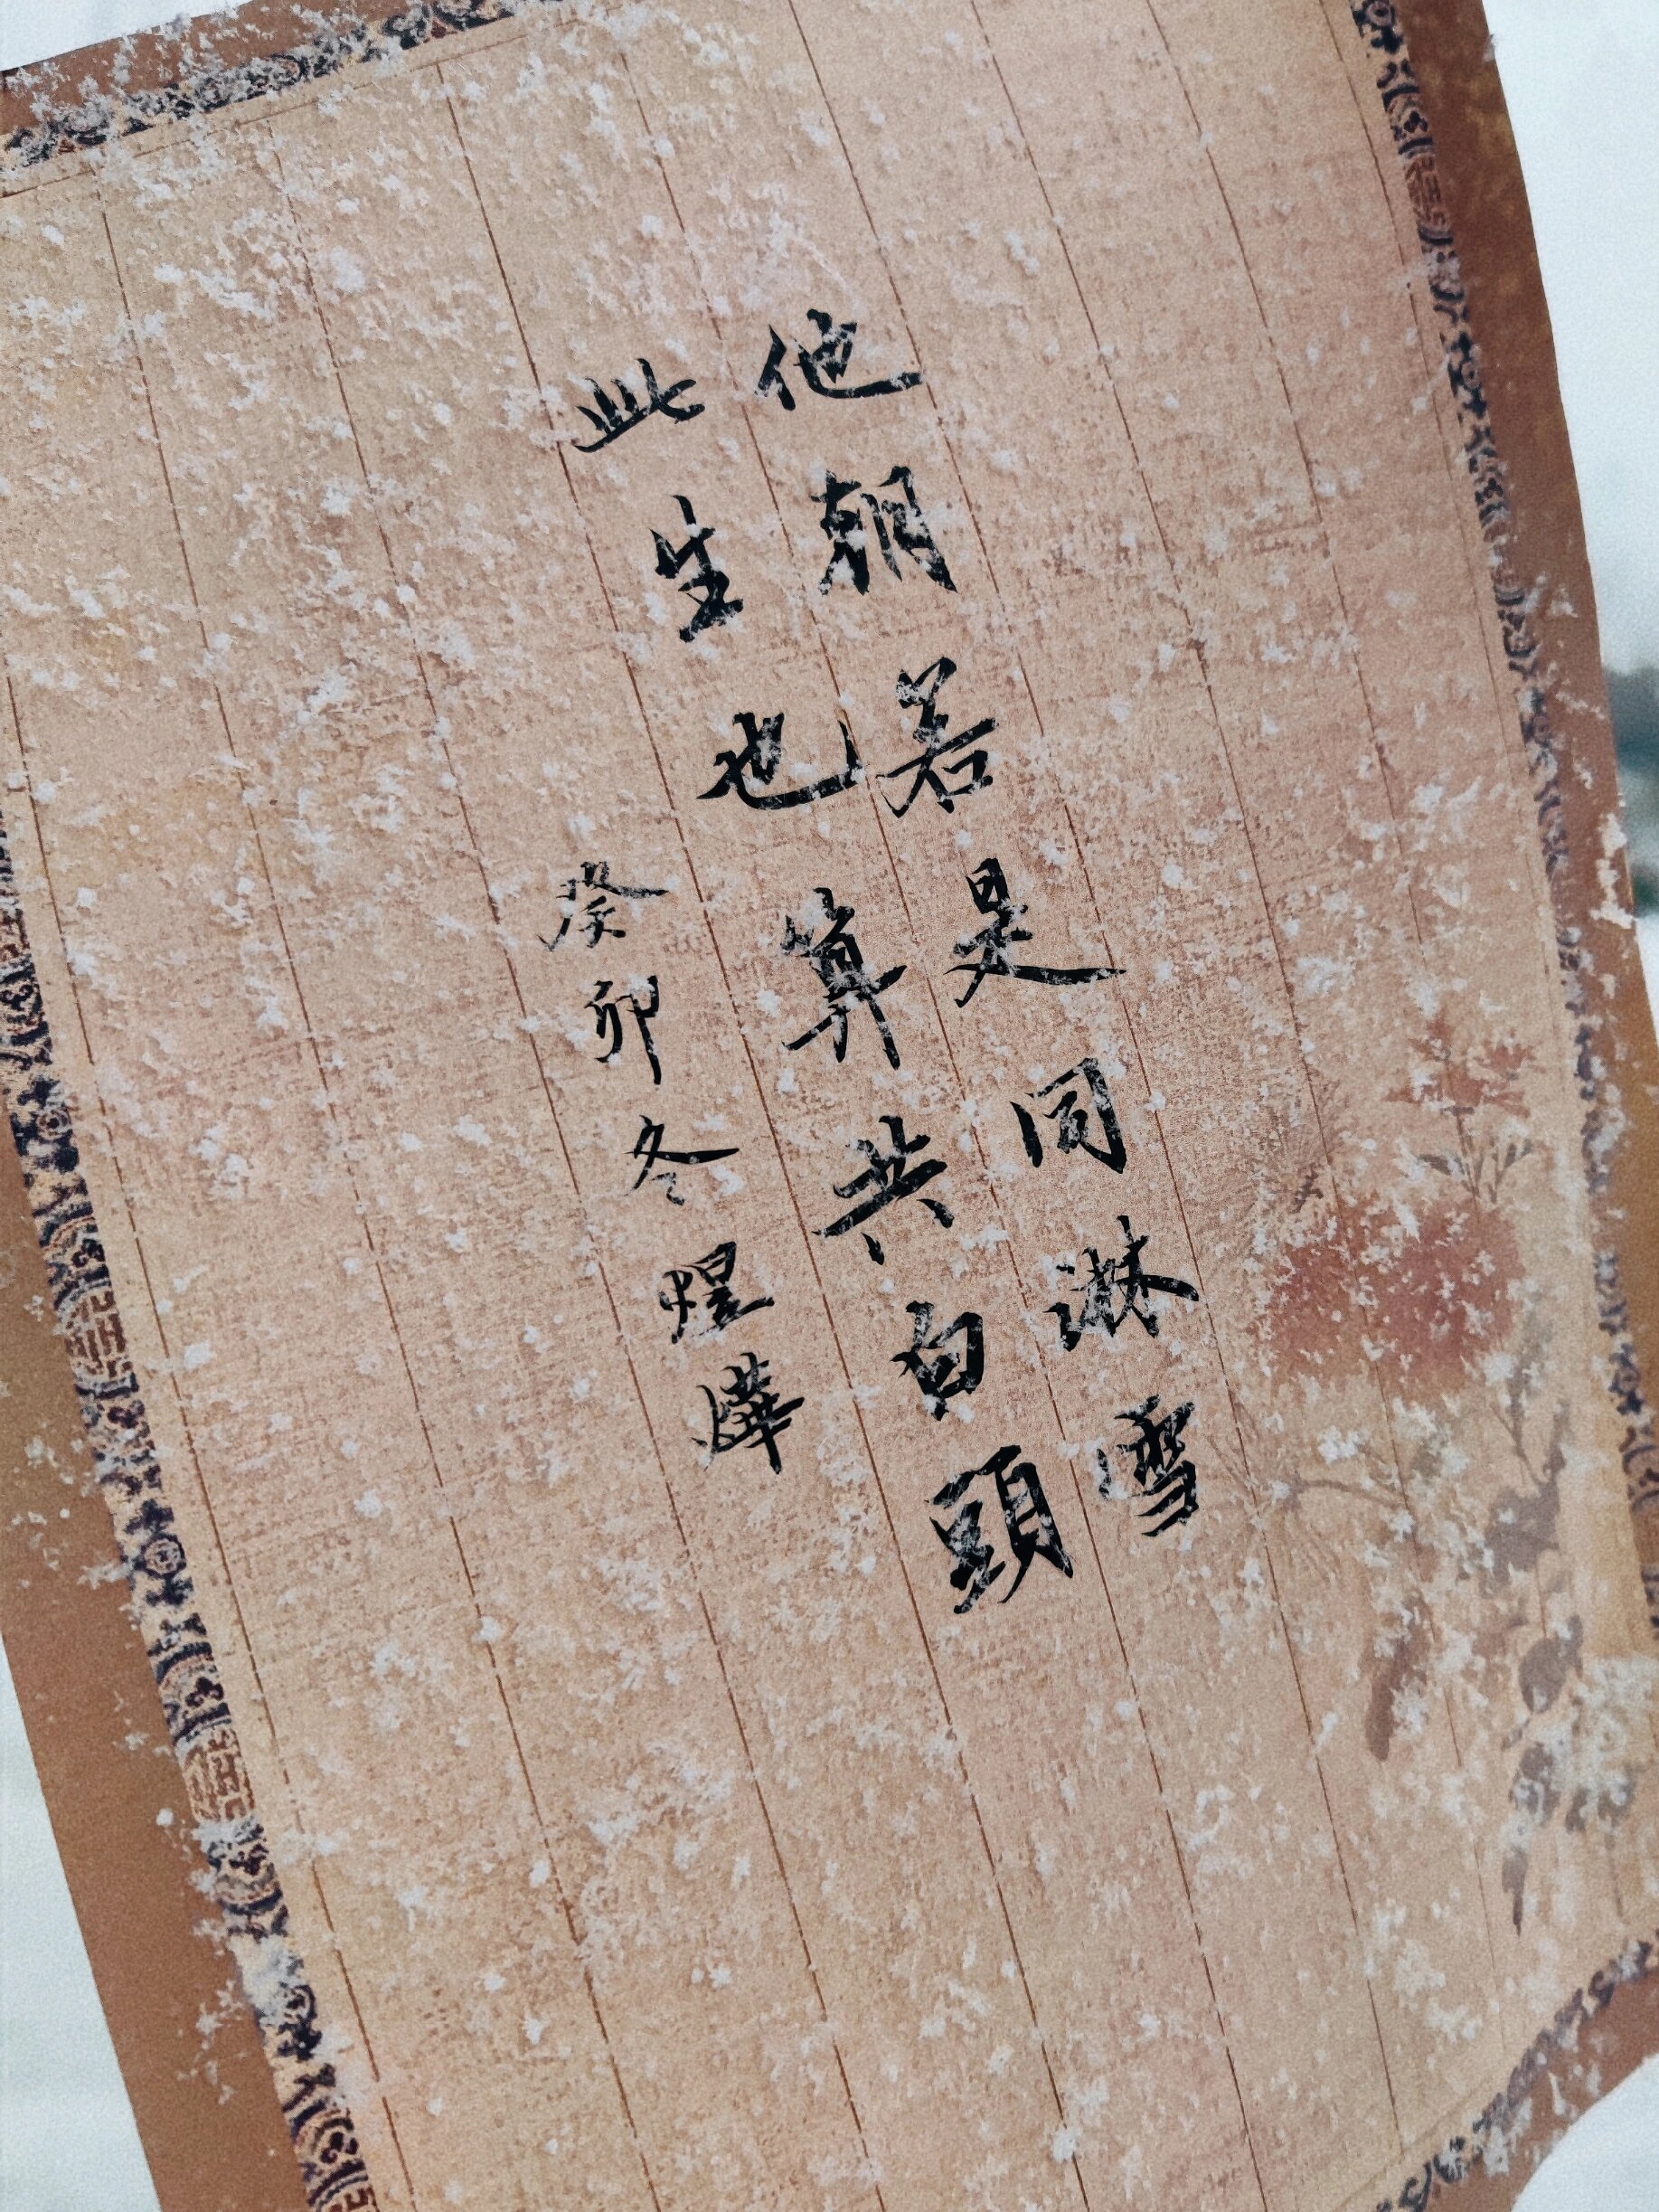 他朝若是同淋雪
此生也算共白頭
癸卯冬煜燁